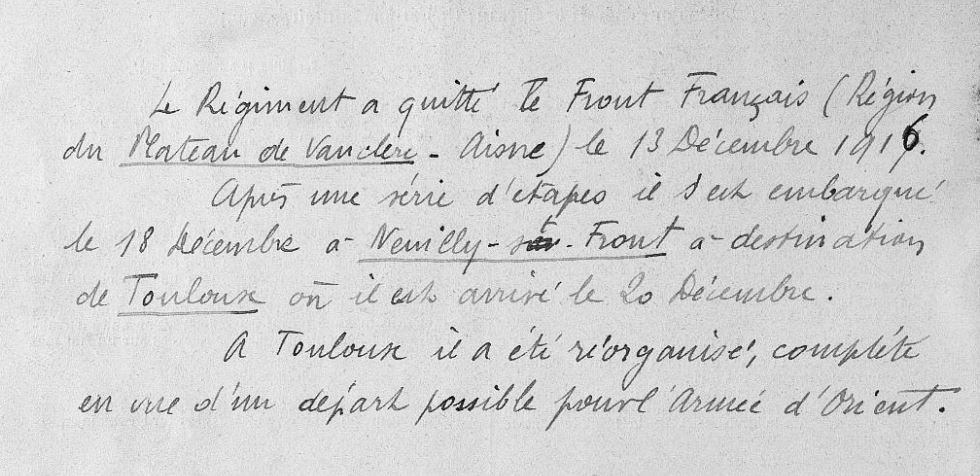 Le Régiment a quitté le Front Français (Région
du Plateau de Vauclerc - Aisne) le 13 Décembre 1916.
Après une série d'étapes il s'est embarqué
le 18 Décembre à Neuilly-st-Front à destination
de Toulouse où il est arrivé le 20 Décembre.
A Toulouse il a été réorganisé, complété
en vue d'un départ possible pour l'Armée d'Orient.